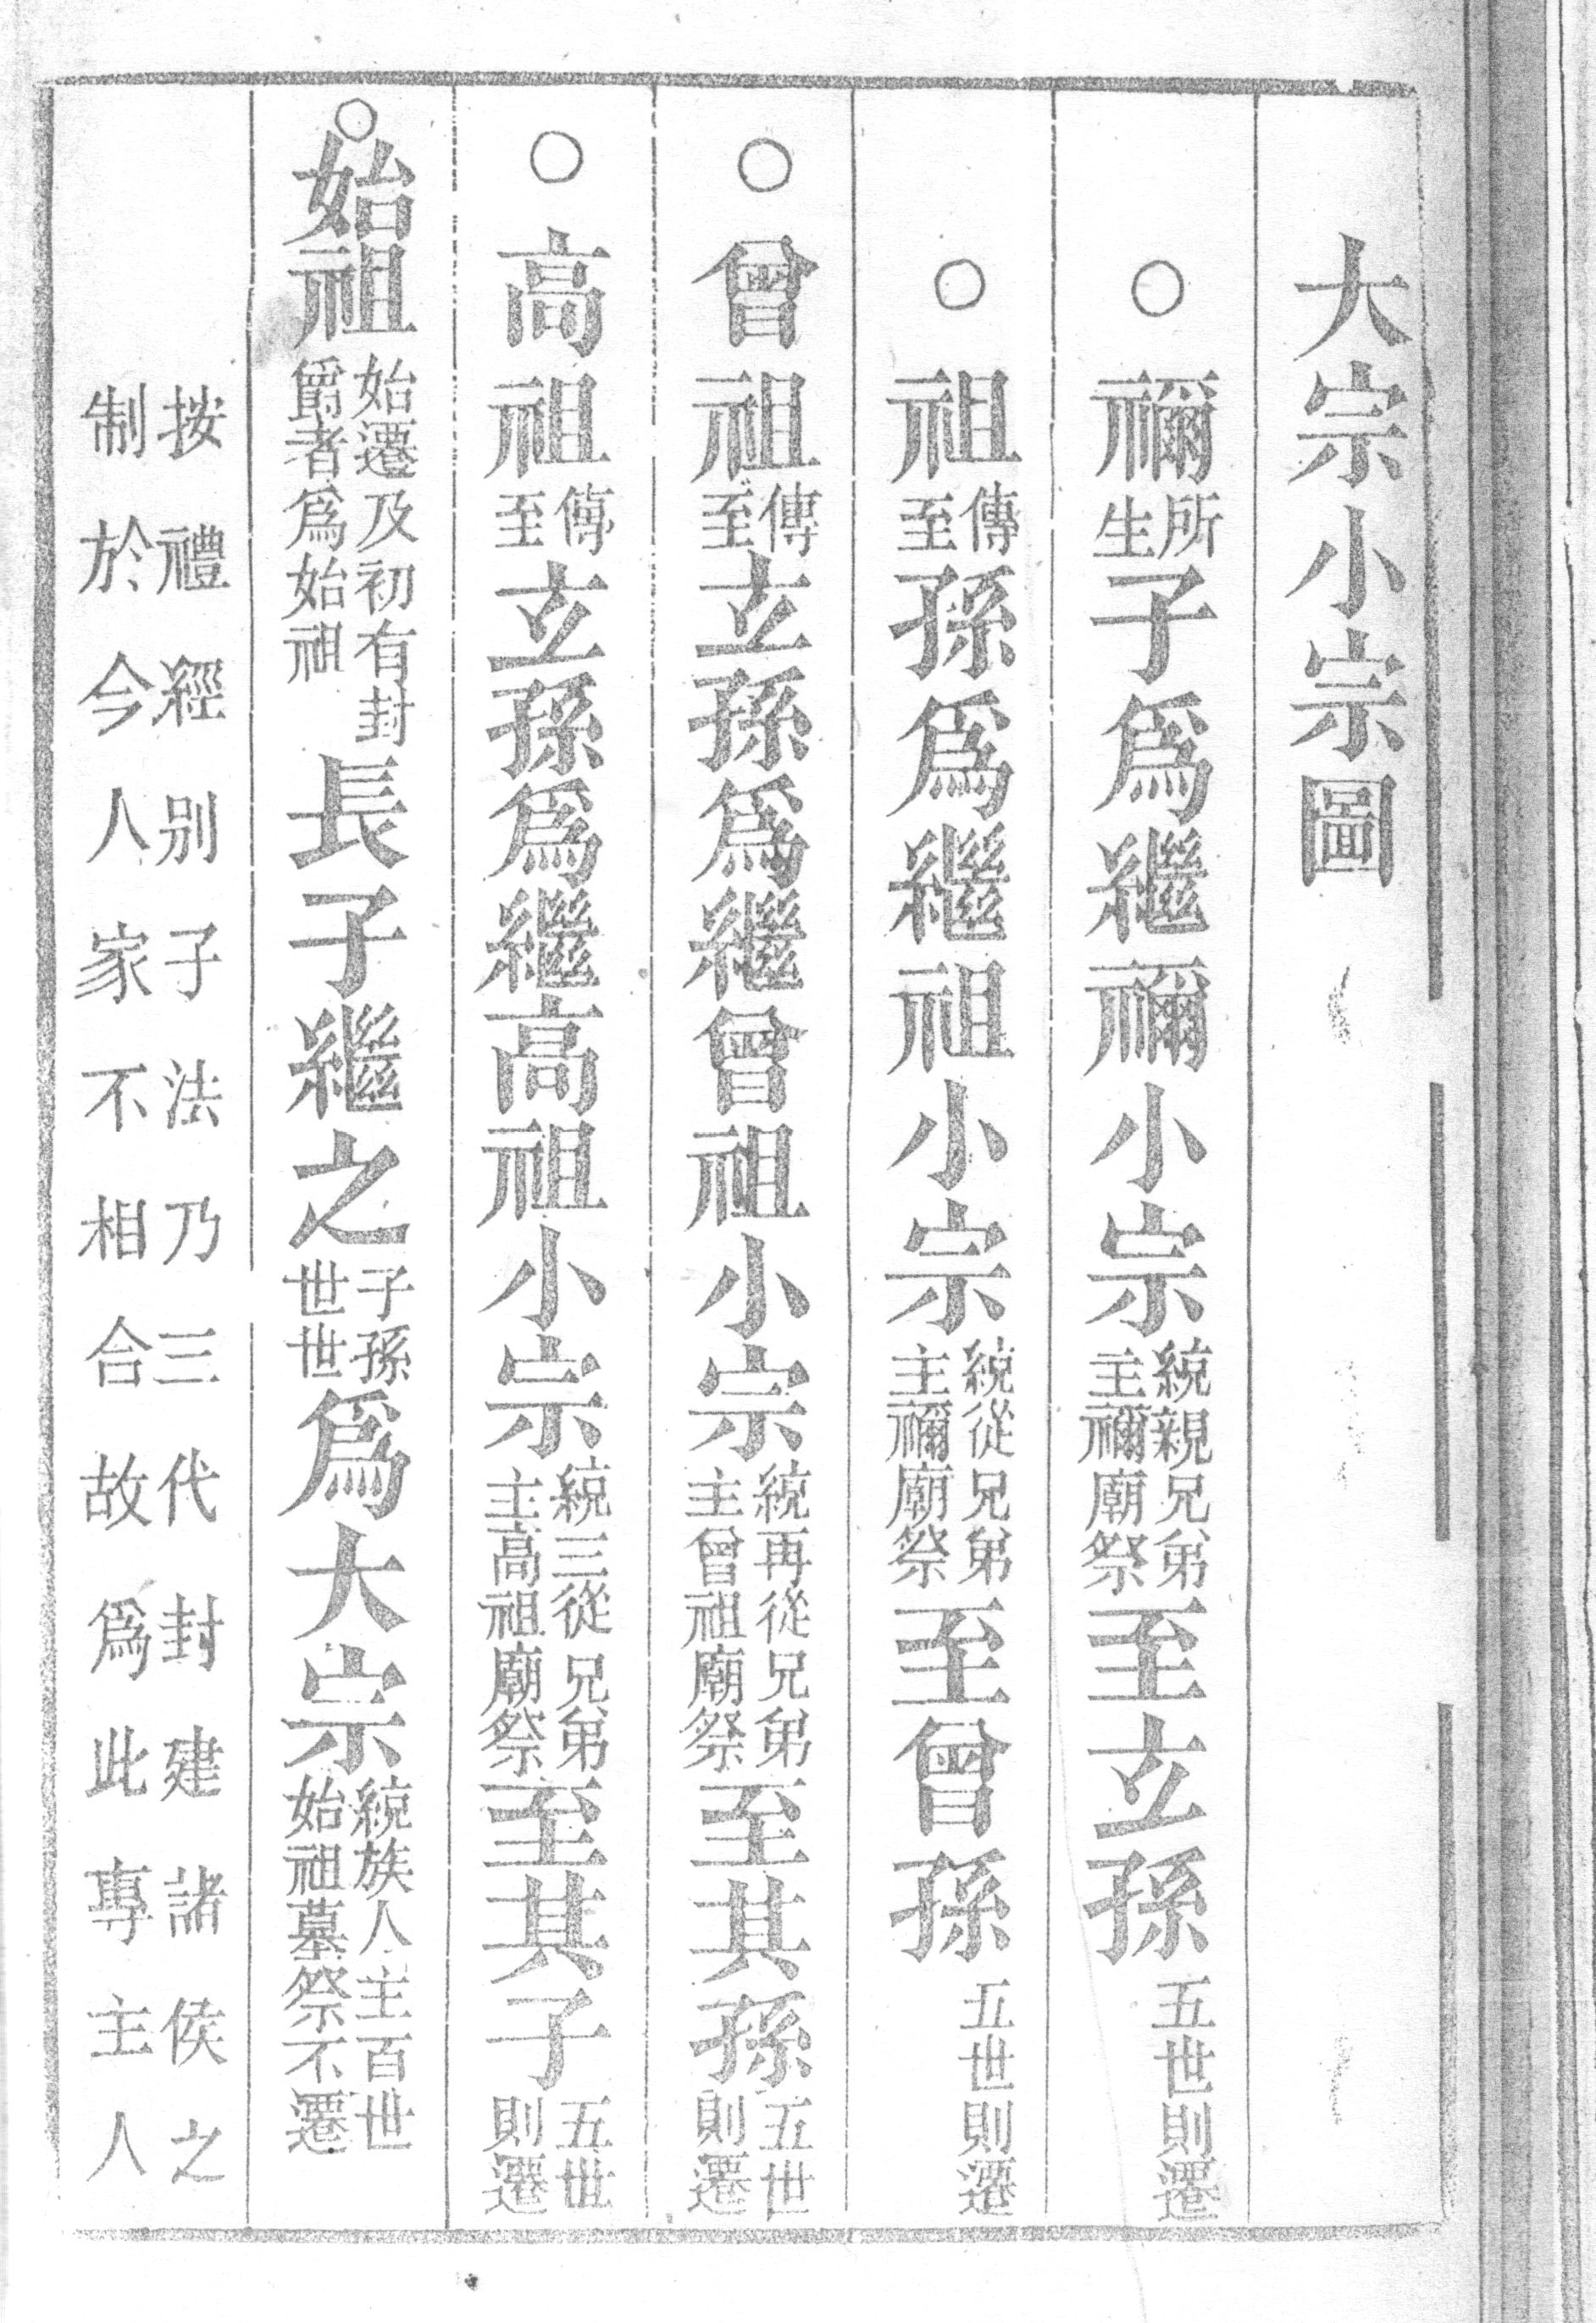 大宗小宗圖
○禰所生子爲繼禰小宗統親兄弟主禰廟祭至立孫五世則遷
○祖傳至孫爲繼祖小宗統從兄弟主禰廟祭至曾孫五世則遷
○曾祖傳至立孫爲繼曾祖小宗統再從兄弟主曾祖廟祭至其孫五世則遷
○高祖傳至立孫爲繼高祖小宗統三從兄弟主高祖廟祭至其子五世則遷
○始祖始遷及初有封爵者爲始祖長子繼之子孫世世爲大宗統族人主百世始祖墓祭不遷
按禮經别子法乃三代封建諸侯之
制於今人家不相合故爲此專主人